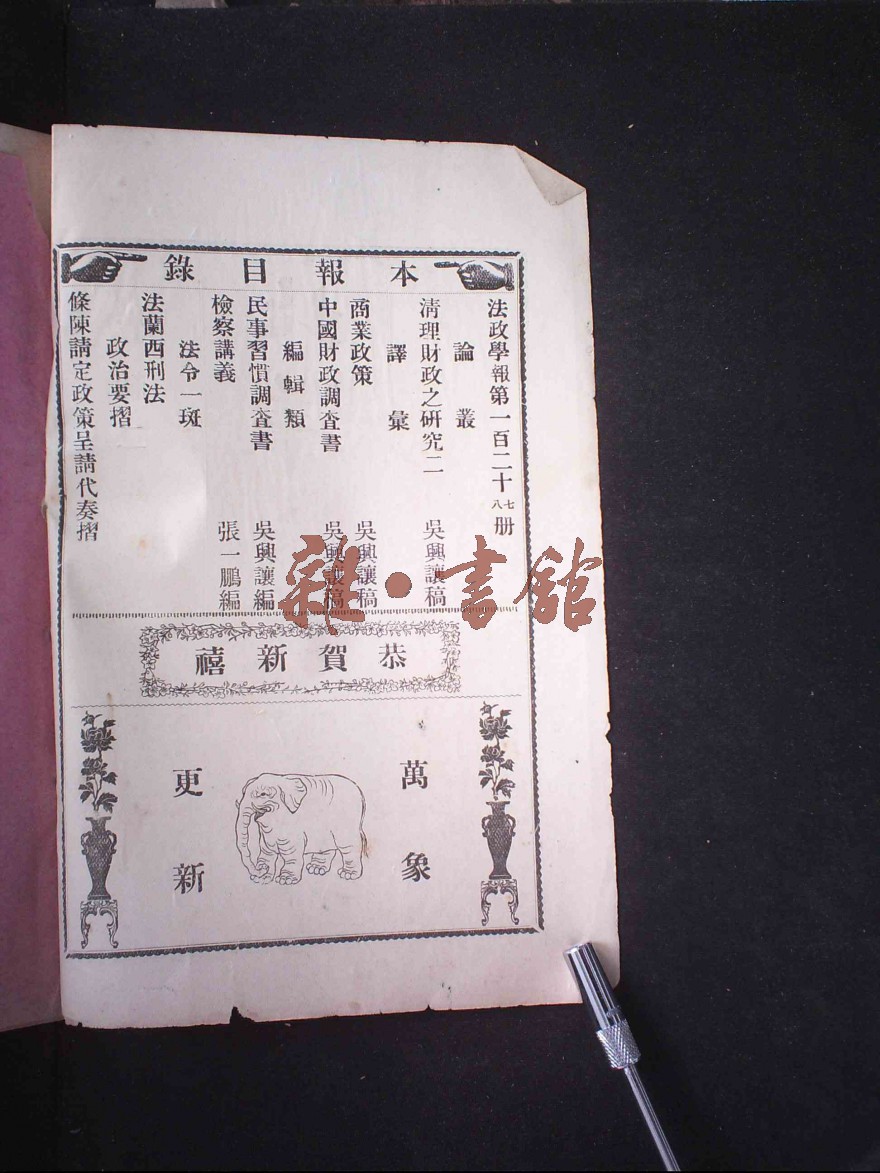 本報目錄
法政學報第一百二十七八册
論叢
淸理財政之硏究二 吳興讓稿
譯彙
商業政策 吳興讓稿
中國財政調查書 吳興讓稿
編輯類
民事習慣調查書 吳興讓編
檢察講義 張一鵬編
法令一斑
法蘭西刑法
政治要摺
條陳請定政策呈請代奏摺
恭賀新禧
萬象
更新
雜·書館